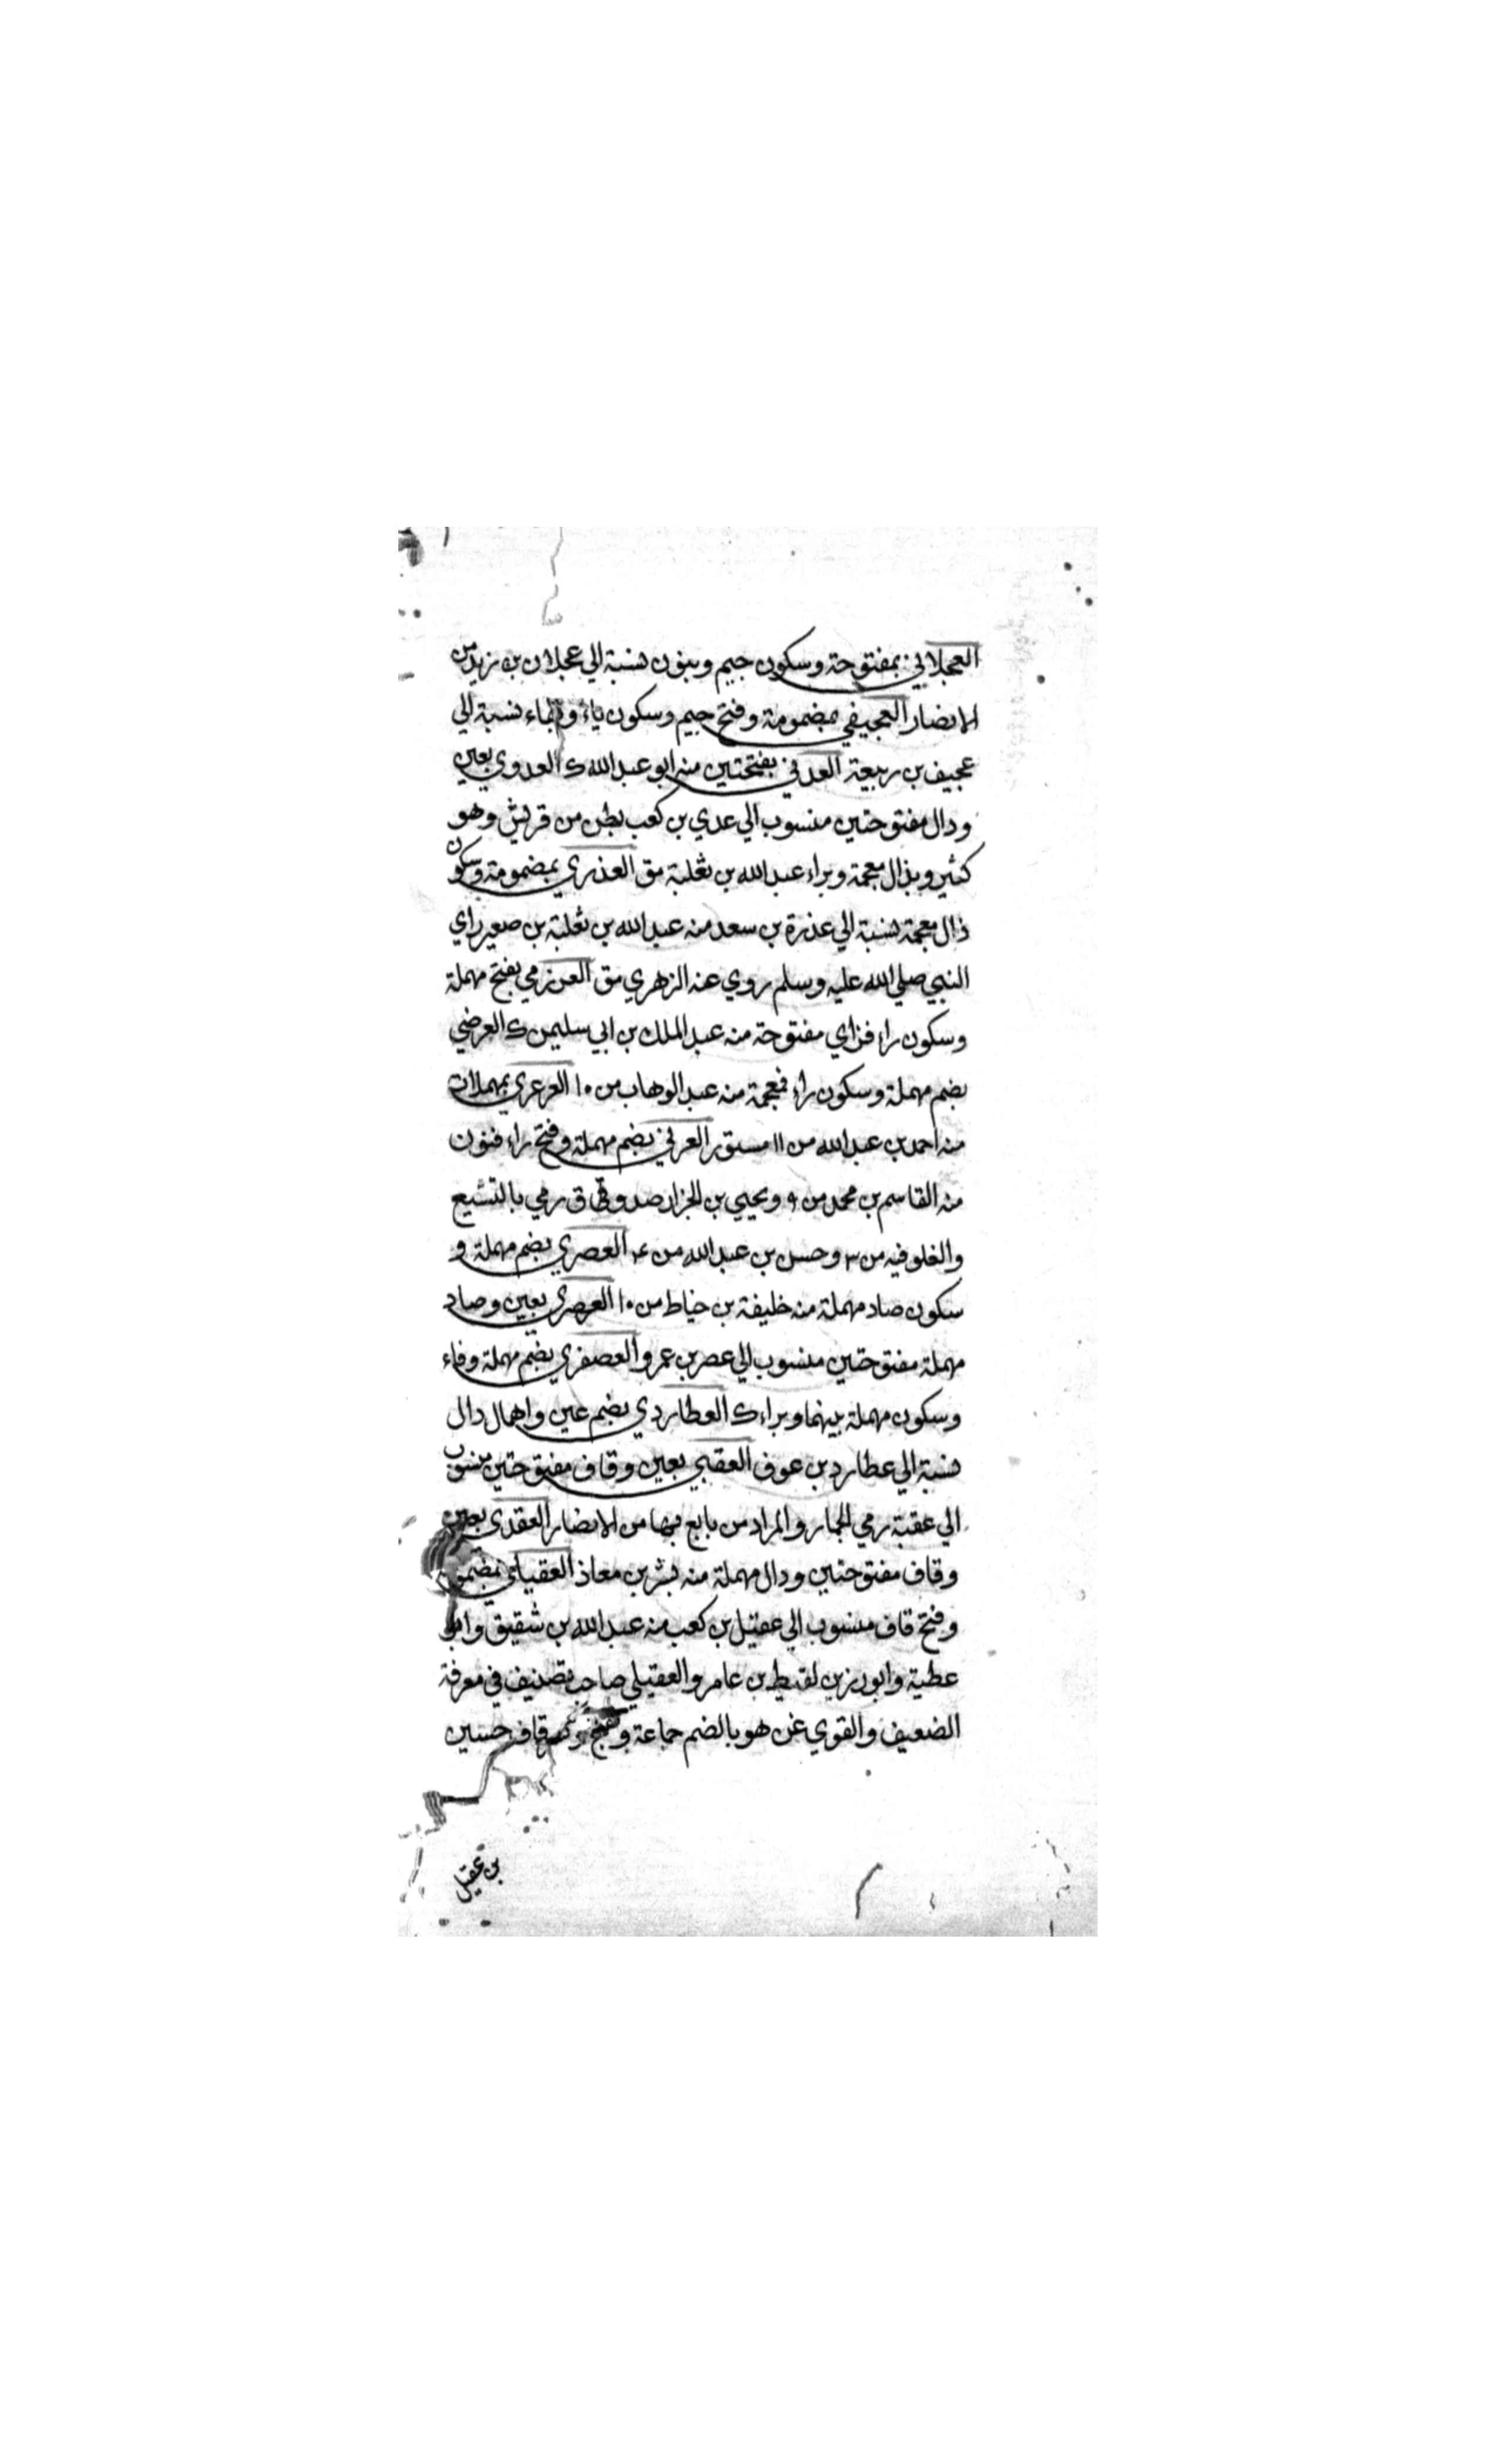 العجلاني بمفتوحة وسكون جيم وبنون نسبة الي عجلان بن زيد من
الانصار العجيفي بمضمومة وفتح جيم وسكون ياء وبفاء نسبة الي
عجيف بن ربيعة العدني بفتحتين منه ابو عبد الله ك العدوي بعين
ودال مفتوحتين منسوب الي عدي بن كعب بطن من قريش وهو
كثير وبذال معجمة وبراء عبد الله بن ثعلبة مق العذري بمضمومة وسكون
ذال معجمة نسبة الي عذرة بن سعد منه عبد الله بن ثعلبة بن صعير راي
النبي صلي الله عليه وسلم روي عنه الزهري مق العرزمي بفتح مهملة
وسكون راء فزاي مفتوحة منه عبد الملك بن ابي سليمن ك العرضي
بضم مهملة وسكون راء فمعجمة منه عبد الوهاب من ١٠ العرعري بمهملات
منه احمد بن عبد الله من ١١ مستور العرني بضم مهملة وفتح راء فنون
منه القاسم بن محمد من ٩ ويحيي بن الجزار صدوق ق رمي بالتشيع
والغلو فيه من ٣ وحسن بن عبد الله من ٤ العصري بضم مهملة و
سكون صاد مهملة منه خليفة بن خياط من ١٠ العصري بعين وصاد
مهملة مفتوحتين منسوب الي عصر بن عمرو العصفري بضم مهملة وفاء
وسكون مهملة بينهما وبراء ك العطاردي بضم عين واهمال دال
نسبة الي عطارد بن عوف العقبي بعين وقاف مفتوحتين منسوب
الي عقبة رمي الجمار والمراد من بايع بها من الانصار العقدي بعين
وقاف مفتوحتين ودال مهملة منه بشر بن معاذ العقيلي بمضمومة
وفتح قاف منسوب الي عقيل بن كعب منه عبد الله بن شقيق وابو
عطية وابو رزين لقيط بن عامر والعقيلي صاحب تصنيف في معرفة
الضعيف والقوي غن هو بالضم جماعة وبفتح وكسر قاف حسين
بن عقيل